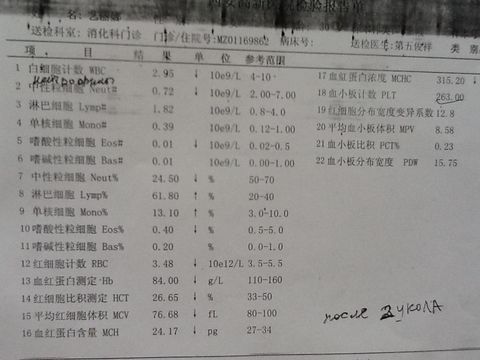 送检科室: 消化科门诊 门诊/住院号:MZ01169862 病床号: 送检医生:第五俊祥
项 目 结 果 单 位 参考范围
1 白细胞计数 WBC 2.95 ↓ 10e9/L 4-10 17血红蛋白浓度 MCHC 315.20 ↓
2 中性粒细胞 Neut# 0.72 ↓ 10e9/L 2.00-7.00 18血小板计数 PLT 263.00
3 淋巴细胞 Lymp# 1.82 10e9/L 0.8-4.0 19红细胞分布宽度变异系数 12.8
4 单核细胞 Mono# 0.39 10e9/L 0.12-1.00 20平均血小板体积 MPV 8.58
5 嗜酸性粒细胞 Eos# 0.01 ↓ 10e9/L 0.02-0.5 21血小板比积 PCT% 0.23
6 嗜碱性粒细胞 Bas# 0.01 10e9/L 0.00-1.00 22血小板分布宽度 PDW 15.75
7 中性粒细胞 Neut% 24.50 ↓ % 50-70
8 淋巴细胞 Lymp% 61.80 ↑ % 20-40
9 单核细胞 Mono% 13.10 ↑ % 3.0-10.0
10嗜酸性粒细胞 Eos% 0.40 ↓ % 0.5-5.0
11嗜碱性粒细胞 Bas% 0.20 % 0.0-1.0
12红细胞计数 RBC 3.48 ↓ 10e12/L 3.5-5.5
13血红蛋白测定·Hb 84.00 ↓ g/L 110-160
14红细胞比积测定 HCT 26.65 ↓ % 33-50
15平均红细胞体积 MCV 76.68 ↓ fL 80-100
16血红蛋白含量 MCH 24.17 ↓ pg 27-34
после 2 укола